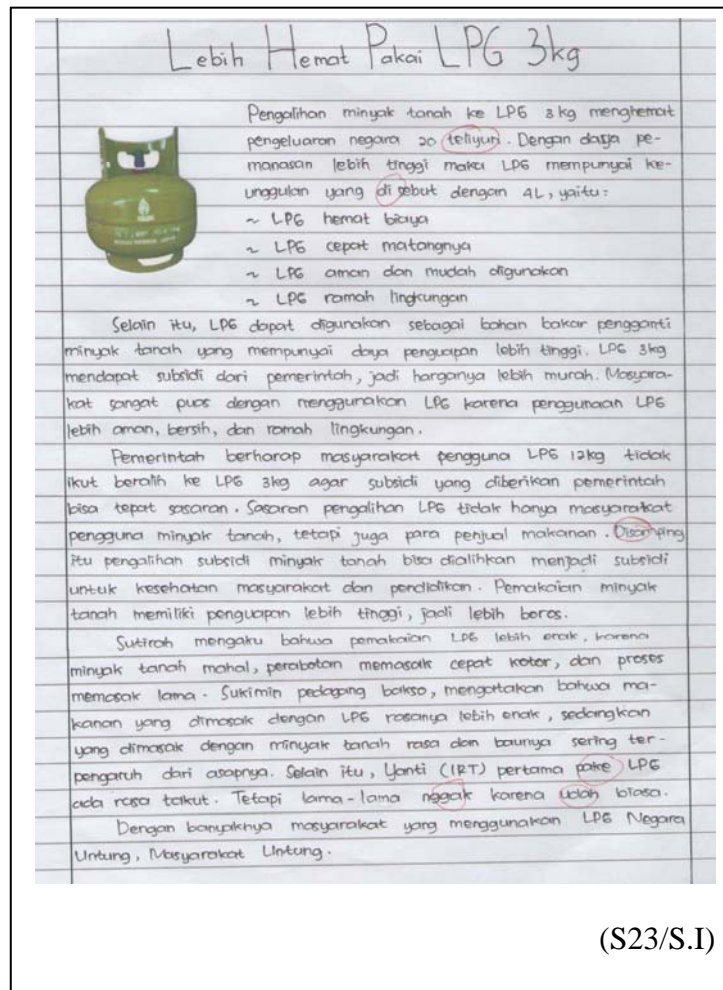 Lebih Hemat Pakai LPG 3kg
Pengalihan minyak tanah ke LPG 3 kg menghemat
pengeluaran negara 20 teliyun. Dengan daya pe-
manasan lebih tinggi maka LPG mempunyai ke-
unggulan yang di sebut dengan 4L, yaitu:
~ LPG hemat biaya
~ LPG cepat matangnya
~ LPG aman dan mudah digunakan
~ LPG ramah lingkungan
Selain itu, LPG dapat digunakan sebagai bahan bakar pengganti
minyak tanah yang mempunyai daya penguapan lebih tinggi. LPG 3kg
mendapat subsidi dari pemerintah, jadi harganya lebih murah. Masyara-
kat sangat puas dengan menggunakan LPG karena penggunaan LPG
lebih aman, bersih, dan ramah lingkungan.
Pemerintah berharap masyarakat pengguna LPG 12kg tidak
ikut beralih ke LPG 3kg agar subsidi yang diberikan pemerintah
bisa tepat sasaran. Sasaran pengalihan LPG tidak hanya masyarakat
pengguna minyak tanah, tetapi juga para penjual makanan. Disamping
itu pengalihan subsidi minyak tanah bisa dialihkan menjadi subsidi
untuk kesehatan masyarakat dan pendidikan. Pemakaian minyak
tanah memiliki penguapan lebih tinggi, jadi lebih boros.
Sutirah mengaku bahwa pemakaian LPG lebih enak, karena
minyak tanah mahal, perabotan memasak cepat kotor, dan proses
memasak lama. Sukimin pedagang bakso, mengatakan bahwa ma-
kanan yang dimasak dengan LPG rasanya lebih enak, sedangkan
yang dimasak dengan minyak tanah rasa dan baunya sering ter-
pengaruh dari asapnya. Selain itu, Yanti (IRT) pertama pake LPG
ada rasa takut. Tetapi lama-lama nggak karena udah biasa.
Dengan banyaknya masyarakat yang menggunakan LPG Negara
Untung, Masyarakat Untung.
(S23/S.I)